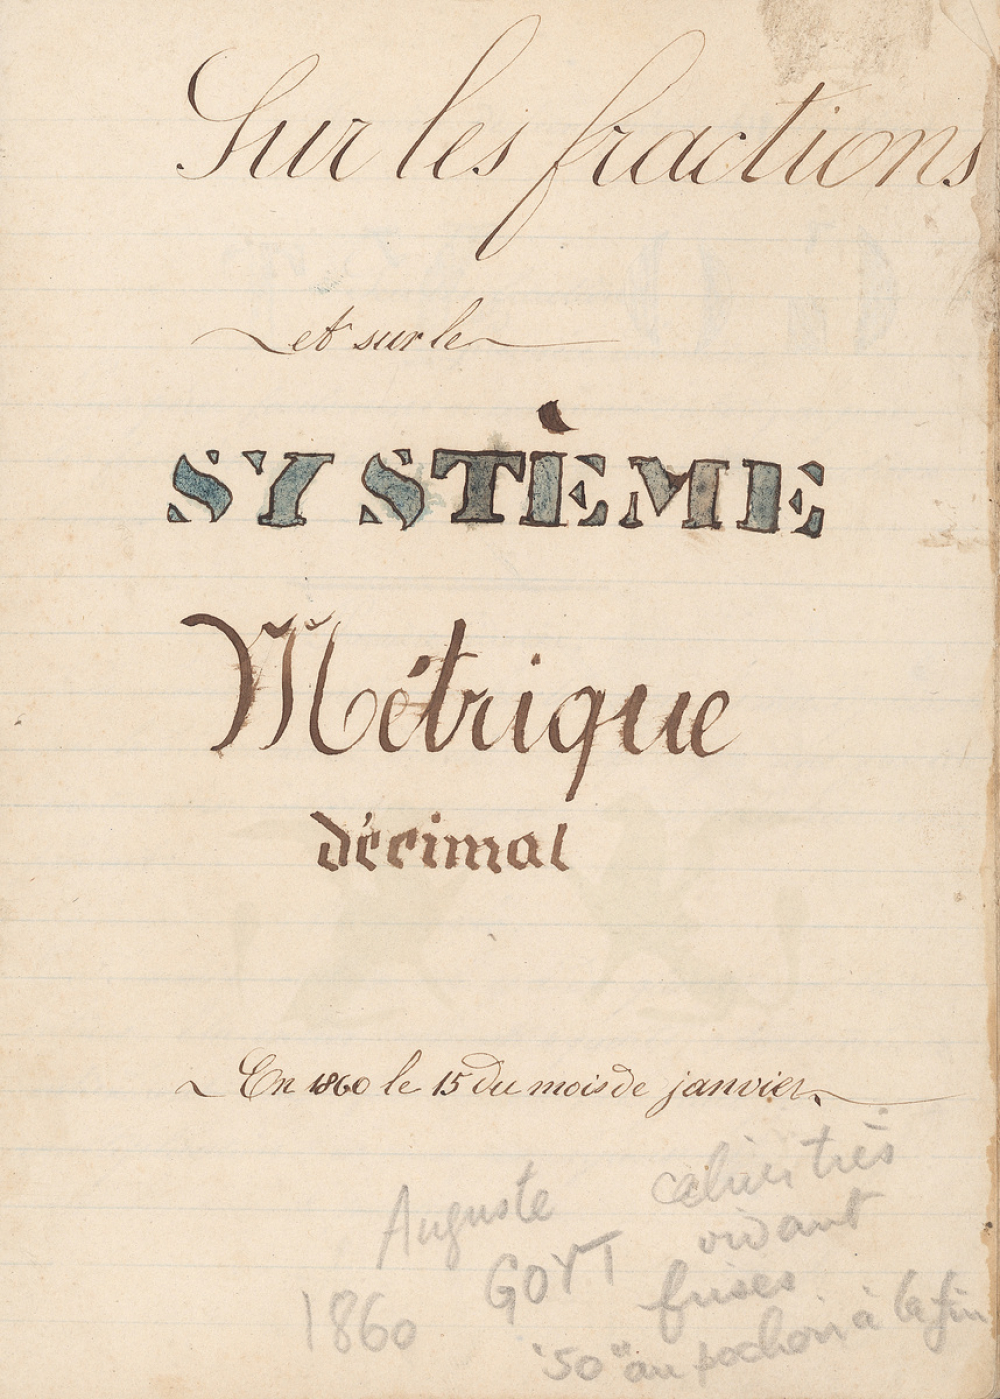 Sur les fractions
et sur le
SYSTÈME
Métrique
décimal
En 1860 le 15 du mois de janvier
Auguste
GOYT
1860
cahier très
vivant
frises
"50" au pochoir à la fin